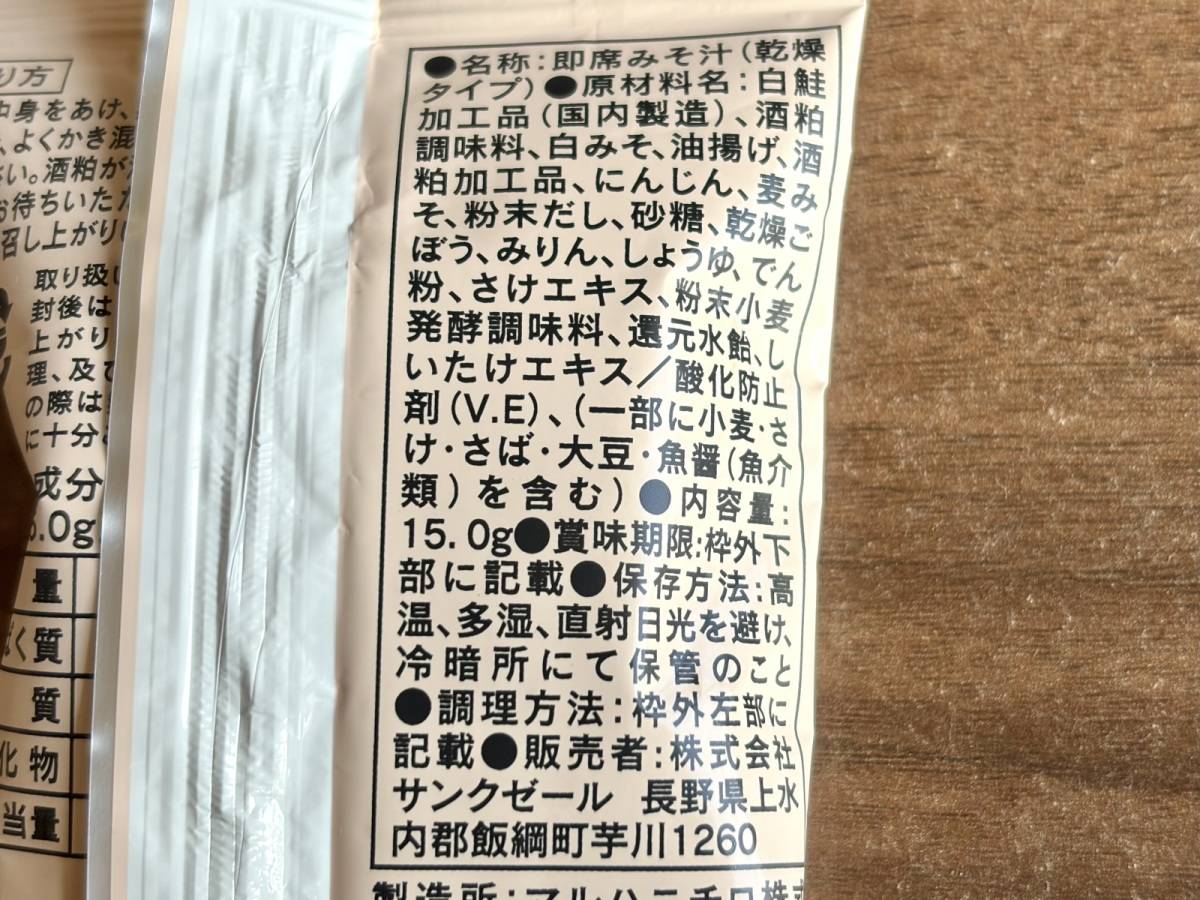 り方
中身をあけ、
よくかき混
い。酒粕が
お待ちいた
召し上がり
取り扱い
封後は
上がり
理、及び
の際は
に十分
成分
.0g
量
く質
質
化物
当量
●名称:即席みそ汁(乾燥
タイプ)●原材料名:白鮭
加工品(国内製造)、酒粕
調味料、白みそ、油揚げ、酒
粕加工品、にんじん、麦み
そ、粉末だし、砂糖、乾燥ご
ぼう、みりん、しょうゆ、でん
粉、さけエキス、粉末小麦
発酵調味料、還元水飴、し
いたけエキス/酸化防止
剤(V.E)、(一部に小麦・さ
け・さば・大豆・魚醤(魚介
類)を含む)●内容量:
15.0g●賞味期限:枠外下
部に記載●保存方法:高
温、多湿、直射日光を避け、
冷暗所にて保管のこと
●調理方法:枠外左部に
記載●販売者:株式会社
サンクゼール 長野県上水
内郡飯綱町芋川1260
製造所:マルハニチロ株